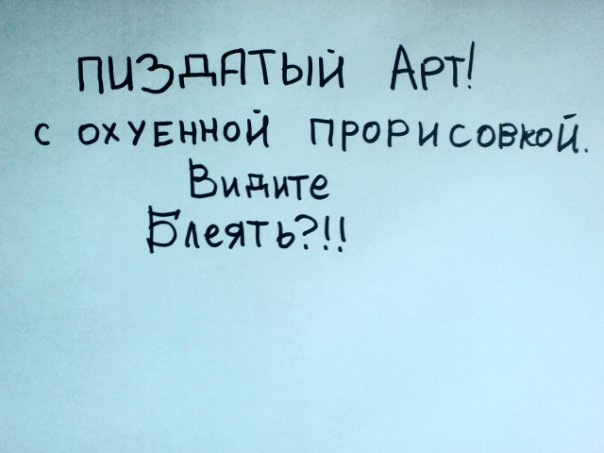 ПИЗДАТЫЙ АРТ!
С ОХУЕННОЙ ПРОРИСОВКОЙ.
Видите
Блеять?!!